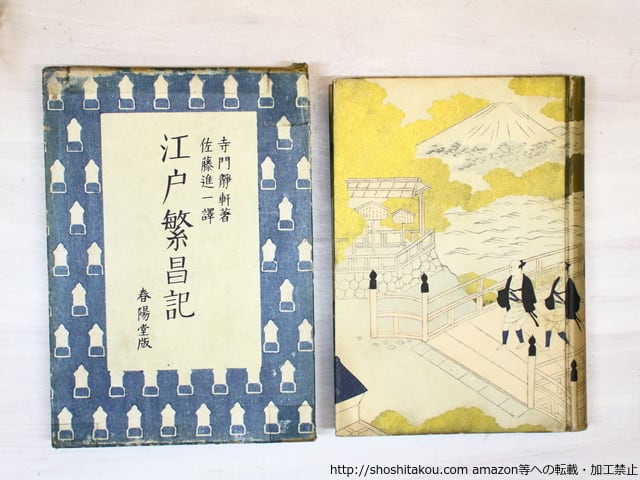 寺門靜軒著
佐藤進一譯
江戸繁昌記
春陽堂版
http://shoshitakou.com amazon等への転載・加工禁止